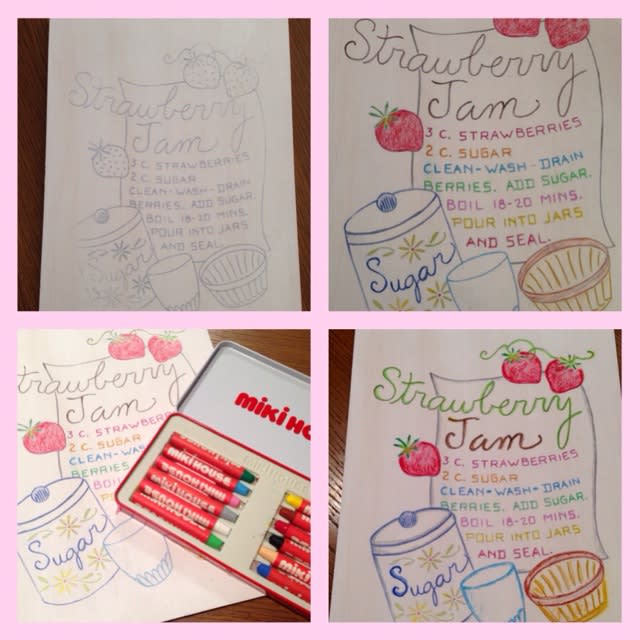 Strawberry
Jam
3 C. STRAWBERRIES
2 C. SUGAR
CLEAN-WASH-DRAIN
BERRIES. ADD SUGAR.
BOIL 18-20 MINS.
POUR INTO JARS
AND SEAL.
Strawberry
Jam
3 C. STRAWBERRIES
2 C. SUGAR
CLEAN-WASH-DRAIN
BERRIES. ADD SUGAR.
BOIL 18-20 MINS.
POUR INTO JARS
AND SEAL.
Sugar
trawberry
Jam
3 C. STRAWB
2 C. SUGAR
CLEAN-WA
BERRIES
Sugar
miki HO
MIKIHOUSE
Strawberry
Jam
3 C. STRAWBERRIES
2 C. SUGAR
CLEAN-WASH-DRAIN
BERRIES. ADD SUGAR.
BOIL 18-20 MINS.
POUR INTO JARS
AND SEAL.
Sugar